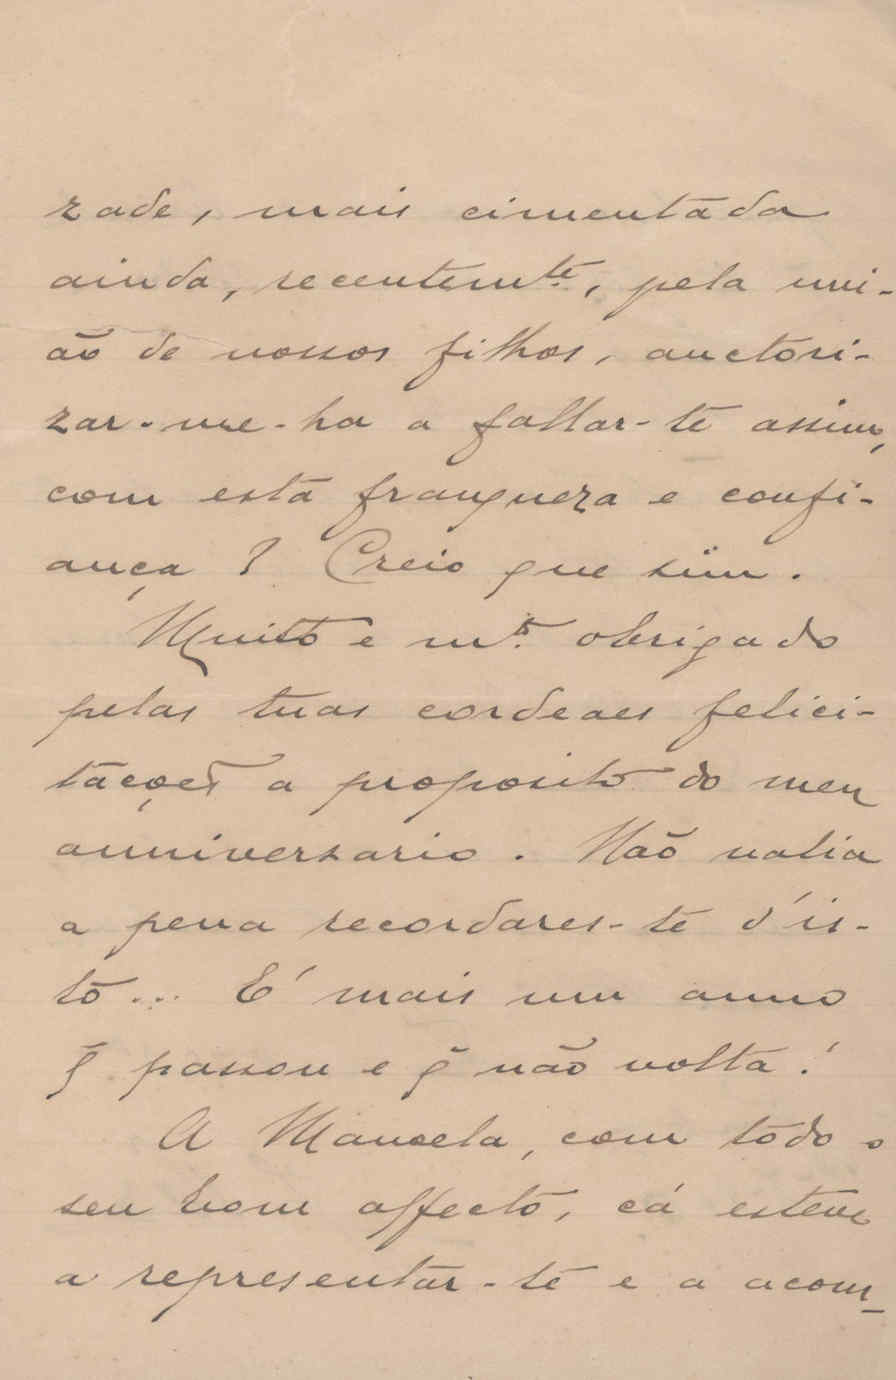 zade, mais cimentada
ainda, recentemte, pela uni-
ão de nossos filhos, auctori-
zar-me-ha a fallar-te assim,
com esta franqueza e confi-
ança? Creio que sim.
Muito e mto. obrigado
pelas tuas cordeaes felici-
tações a proposito do meu
anniversario. Não valia
a pena recordares-te d'is-
to... E' mais um anno
q̃ passou e q̃ não volta!
A Manoela, com todo o
seu bom affecto, cá esteve
a representar-te e a acom-